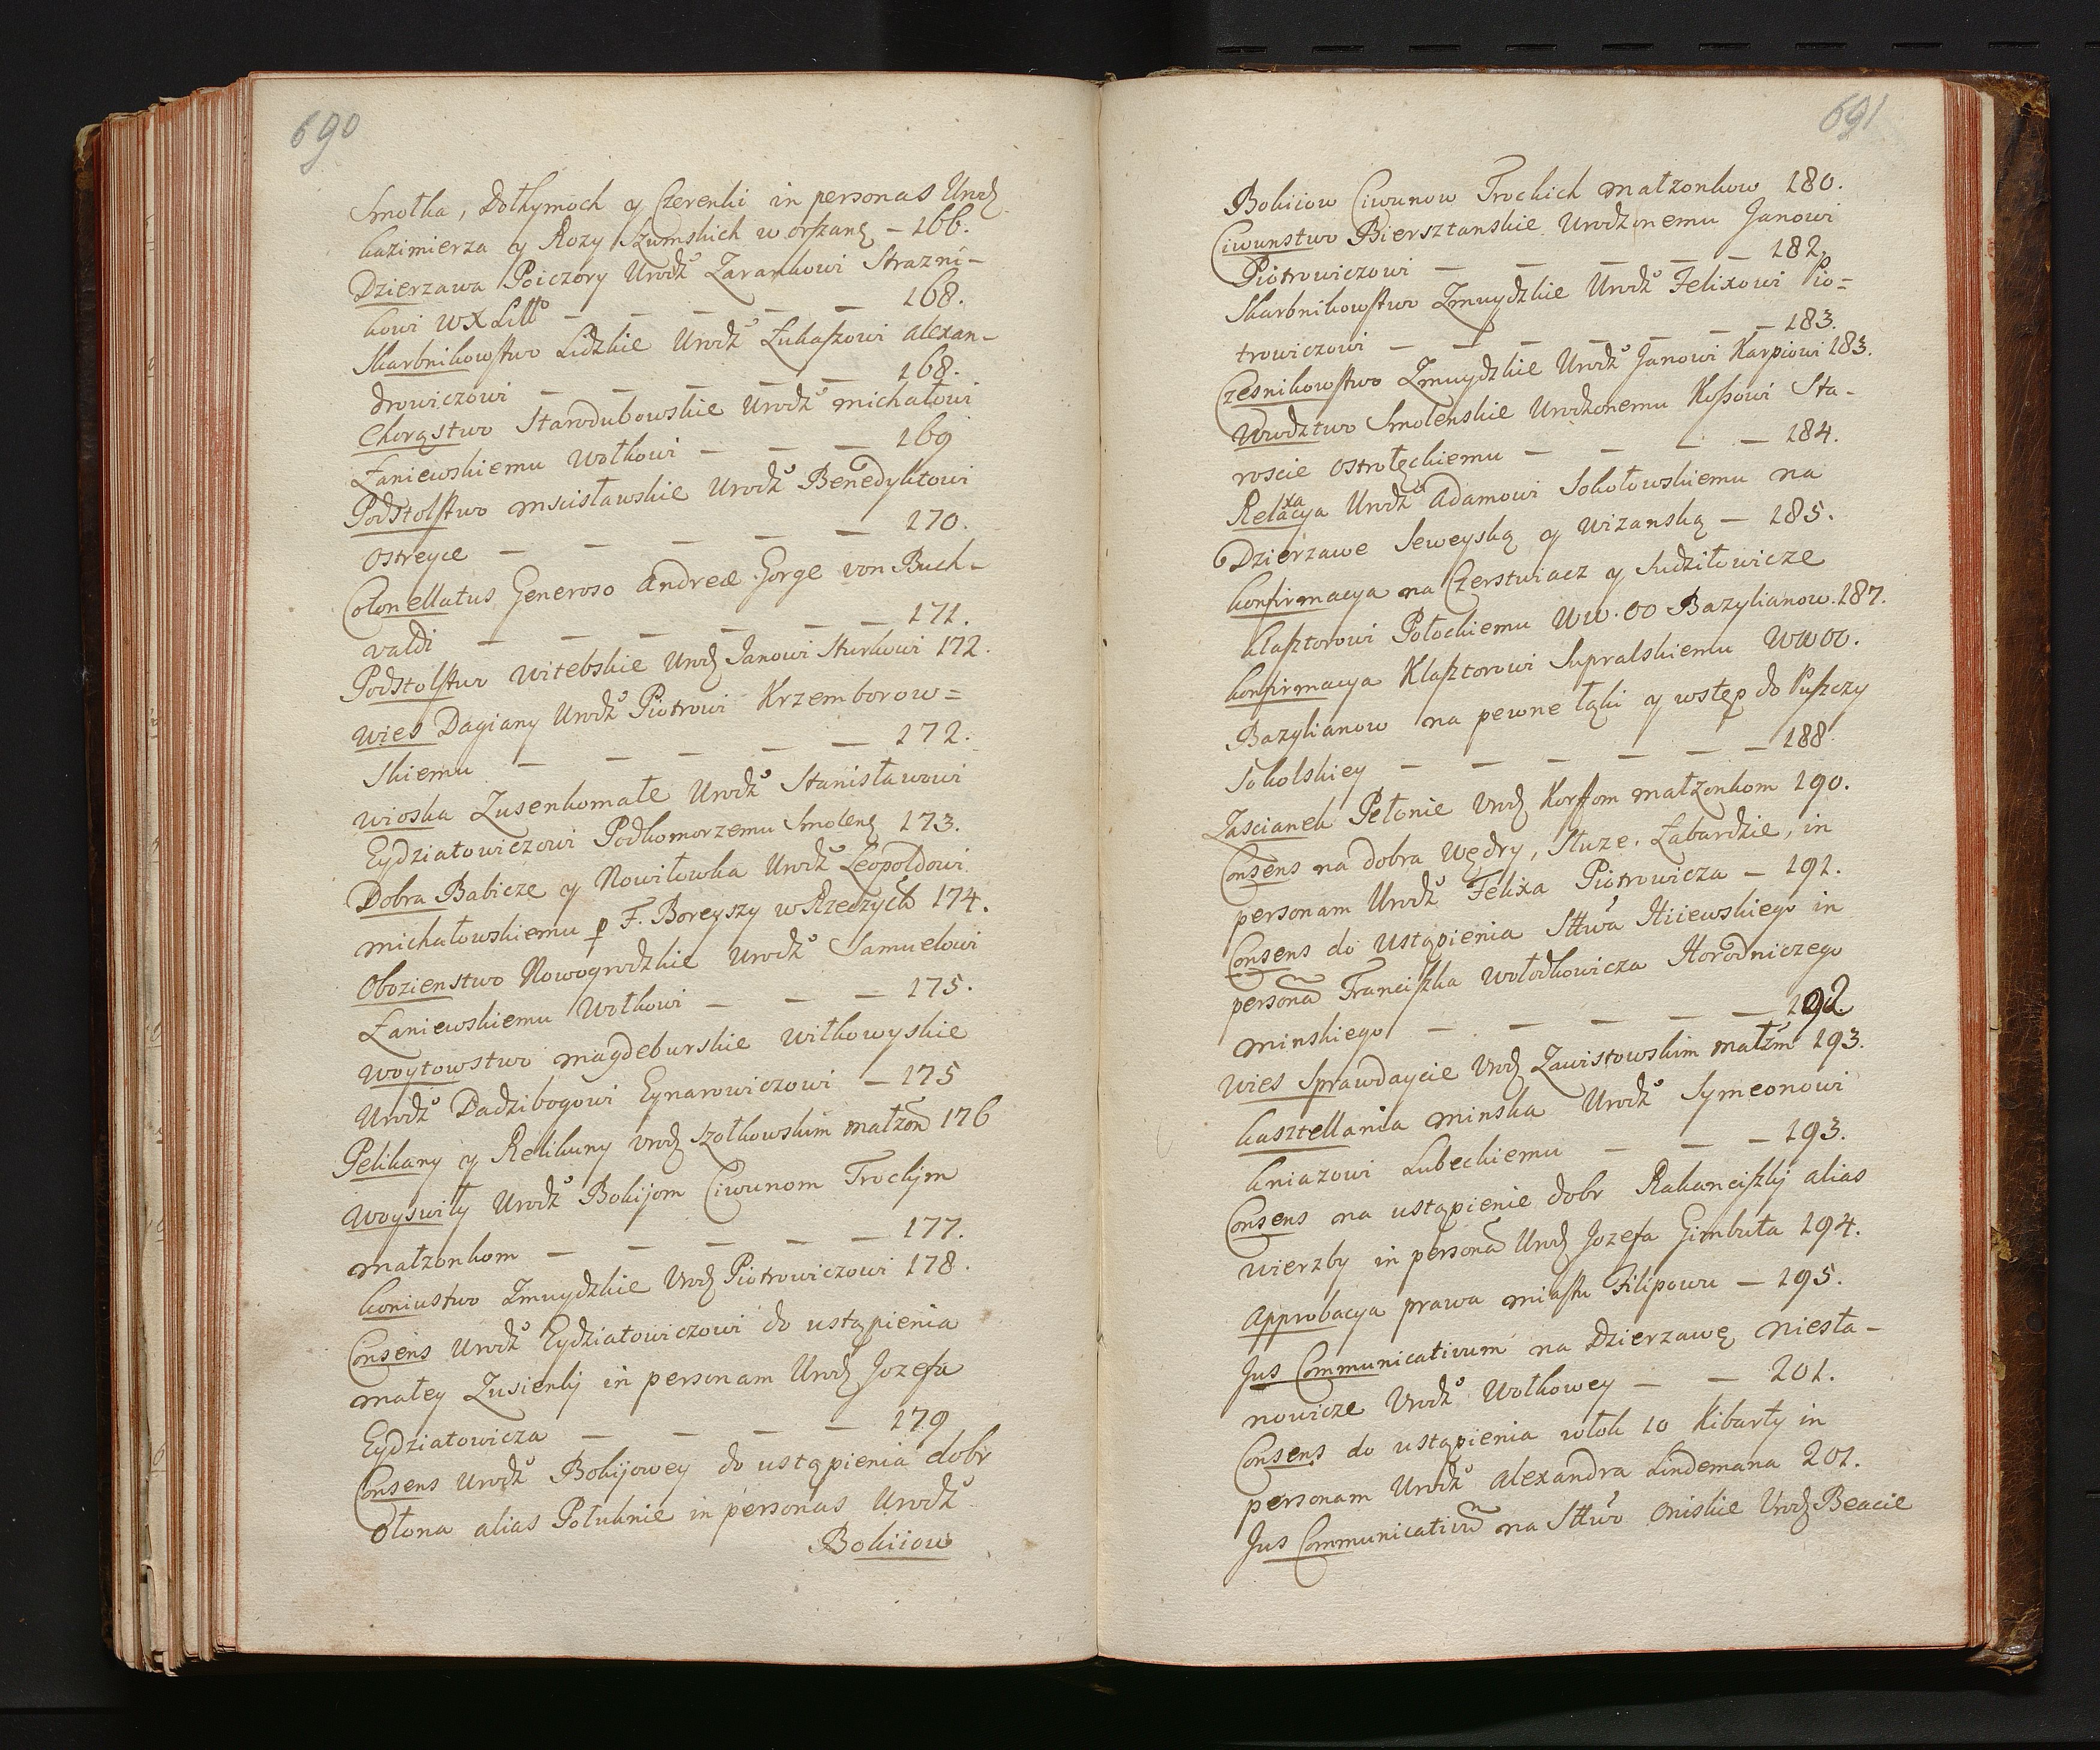 690
Smotka, Dołhymoch y Czerenki in personas Urodz
Kazimierza y Rozy Szumskich w Orszanſ – 166.
Dzierzawa Poiczory Urodzo Zarankowi Strazni-
kowi WXLitto – – – – – 168.
Skarbnikowstwo Lidzkie Urodzo Łukaszowi Alexan-
drowiczowi – – – – – 168.
Chorąstwo Starodubowskie Urodzo Michałowi
Łaniewskiemu Wołkowi – – – 169
Podstolstwo Mscisławskie Urodzo Benedyktowi
Ostreyce – – – – – 170.
Colonellatus Generoso Andreæ Gorge von Buch-
valdi – – – – – – 171.
Podstolstwo Witebskie Urodz Janowi Hurkowi 172.
Wies Dagiany Urodzo Piotrowi Krzemborow=
skiemu – – – – – 172.
Wioska Zusenkomałe Urodzo Stanisławowi
Eydziatowiczowi Podkomorzemu Smolenſ 173.
Dobra Babicze y Nowiłowka Urodzo Leopoldowi
Michałowskiemu p F. Boreyszy w Rzeczych 174.
Obozienstwo Nowogrodzkie Urodzo Samuelowi
Łaniewskiemu Wołkowi – – – 175.
Woytowstwo Magdeburskie Wiłkowyskie
Urodzo Dadzibogowi Eynarowiczowi – 175
Pelikany y Relikuny Urodz Szołkowskim małzon 176
Woyswiły Urodzo Bokijom Ciwunom Trockim
małzonkom – – – – – 177.
Koniustwo Zmuydzkie Urodz Piotrowiczowi 178.
Consens Urodzo Eydziatowiczowi do ustąpienia
małey Zusienki in personam Urodz Jozefa
Eydziatowicza – – – – 179
Consens Urodzo Bokijowey do ustąpienia dobr
Ołona alias Połuknie in personas Urodzo
Bokiiow
691
Bokiiow Ciwunow Trockich małzonkow 180.
Ciwunstwo Biersztanskie Urodzonemu Janowi
Piotrowiczowi – – – – – 182.
Skarbnikowstwo Zmuydzkie Urodzo Felixowi Pio=
trowiczowi – – – – – – 183.
Czesnikowstwo Zmuydzkie Urodzo Janowi Karpiowi 183.
Wwodztwo Smolenskie Urodzonemu Kossowi Sta-
roscie Ostrołęckiemu – – – – 184.
Relaxacya Urodzo Adamowi Sokołowskiemu na
Dzierzawe Seweyską y Wizanską – 185.
Konfirmacya na Czerstwiacz y Sudziłowicze
Klasztorowi Połockiemu WW. OO Bazylianow. 187.
Konfirmacya Klasztorowi Supralskiemu WWOO.
Bazylianow na pewne łąki y wstęp do Puszczy
Sokolskiey – – – – – – 188.
Zascianek Pełonie Urodz Korffom małzonkom 190.
Consens na dobra Wędry, Sluze. Łabardzie, in
personam Urodzo Felixa Piotrowicza – 191.
Consens do ustąpienia Sttwa Hiiewskiego in
persona Franciszka Wołodkowicza Horodniczego
Minskiego – – – – – 192
Wies Sprawdaycie Urodz Zawistowskim małzm 193.
Kasztellania Minska Urodzo Symeonowi
Kniazowi Lubeckiemu – – – 193.
Consens na ustąpienie dobr Rakanciszki alias
Wierzby in persona Urodz Jozefa Gimbuta 194.
Approbacya prawa miastu Filipowu – 195.
Jus Communicativum na Dzierzawę Niesta-
nowicze Urodzo Wołkowey – – 201.
Consens do ustąpienia włok 10 Kibarty in
personam Urodzo Alexandra Lindemana 201.
Jus Communicativu na Sttwo Oniskie Urodz Beacie